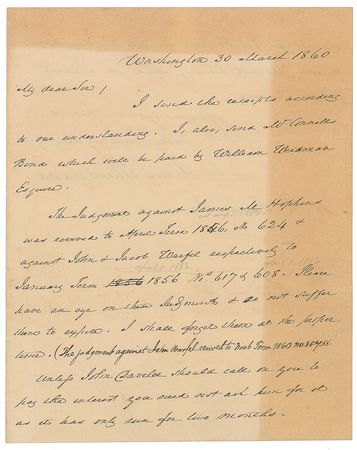 Washington 30 March 1860
My dear Sir,
I send the receipts according
to our understanding. I, also, send McConnells
Bond which will be paid by William
Esquire.
The Judgment against James M. Hopkins
was revived to April Term 1856, No 624 &
against John & Jacob Warfel respectively to
January Term 1856 1856 Nos 617 & 608. Please
have an eye on these Judgments & do not suffer
them to expire. I shall forget them at the proper
time. (The judgment against John Warfel revived to Term 1860 no
Unless John should call on you to
pay the interest you need not ask him for it
as it has only run for two months.